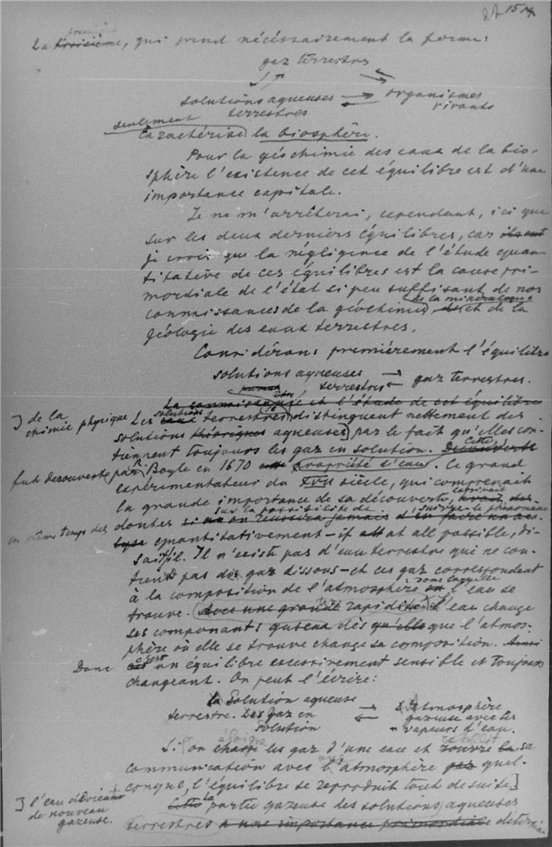 27 15
La troisième, qui prend nécessairement la forme:
gaz terrestres
solutions aqueuses → organismes
terrestres vivants
seulement
caractérise la biosphère.
Pour la géochimie des eaux de la bio-
sphère l'existence de cet équilibre est d'une
importance capitale.
Je ne m'arrêterai, cependant, ici que
sur les deux derniers équilibres, car
je crois que la négligence de l'étude quan-
titative de ces équilibres est la cause pri-
mordiale de l'état si peu suffisant de nos
de la minéralogie
connaissances de la géochimie, et de la
géologie des eaux terrestres.
Considérons premièrement l'équilibre
solutions aqueuses → gaz terrestres.
terrestres ←
La connaissance et l'étude de cet équilibre
] de la
chimie physique
Les solutions terrestres distinguent nettement des
solutions aqueuses) par le fait qu'elles con-
tiennent toujours les gaz en solution. Cette
fut découverte par Boyle en 1670 propriété d'eau. Ce grand
expérimentateur du XVII siècle, qui comprenait
la grande importance de sa découverte,
en même temps des
doutes sur la possibilité de le phénomène
quantitativement – if at all possible, di-
sait-il. Il n'existe pas d'eau terrestre qui ne con-
tient pas des gaz dissous – et ces gaz correspondent
à la composition de l'atmosphère sous laquelle l'eau se
trouve. Avec une grande rapidité l'eau change
ses composants gazeux dès que l'atmos-
phère où elle se trouve change sa composition.
Donc c'est un équilibre excessivement sensible et toujours
changeant. On peut l'écrire:
la Solution aqueuse → Atmosphère
terrestre. Les gaz en ← gazeuse avec les
solution vapeurs d'eau.
Si on les gaz d'une eau et sa
communication avec l'atmosphère quel-
conque, l'équilibre se reproduit tout de suite]
] l'eau devient
de nouveau
gazeuse.
La partie gazeuse des solutions aqueuses
terrestres a une importance primordiale